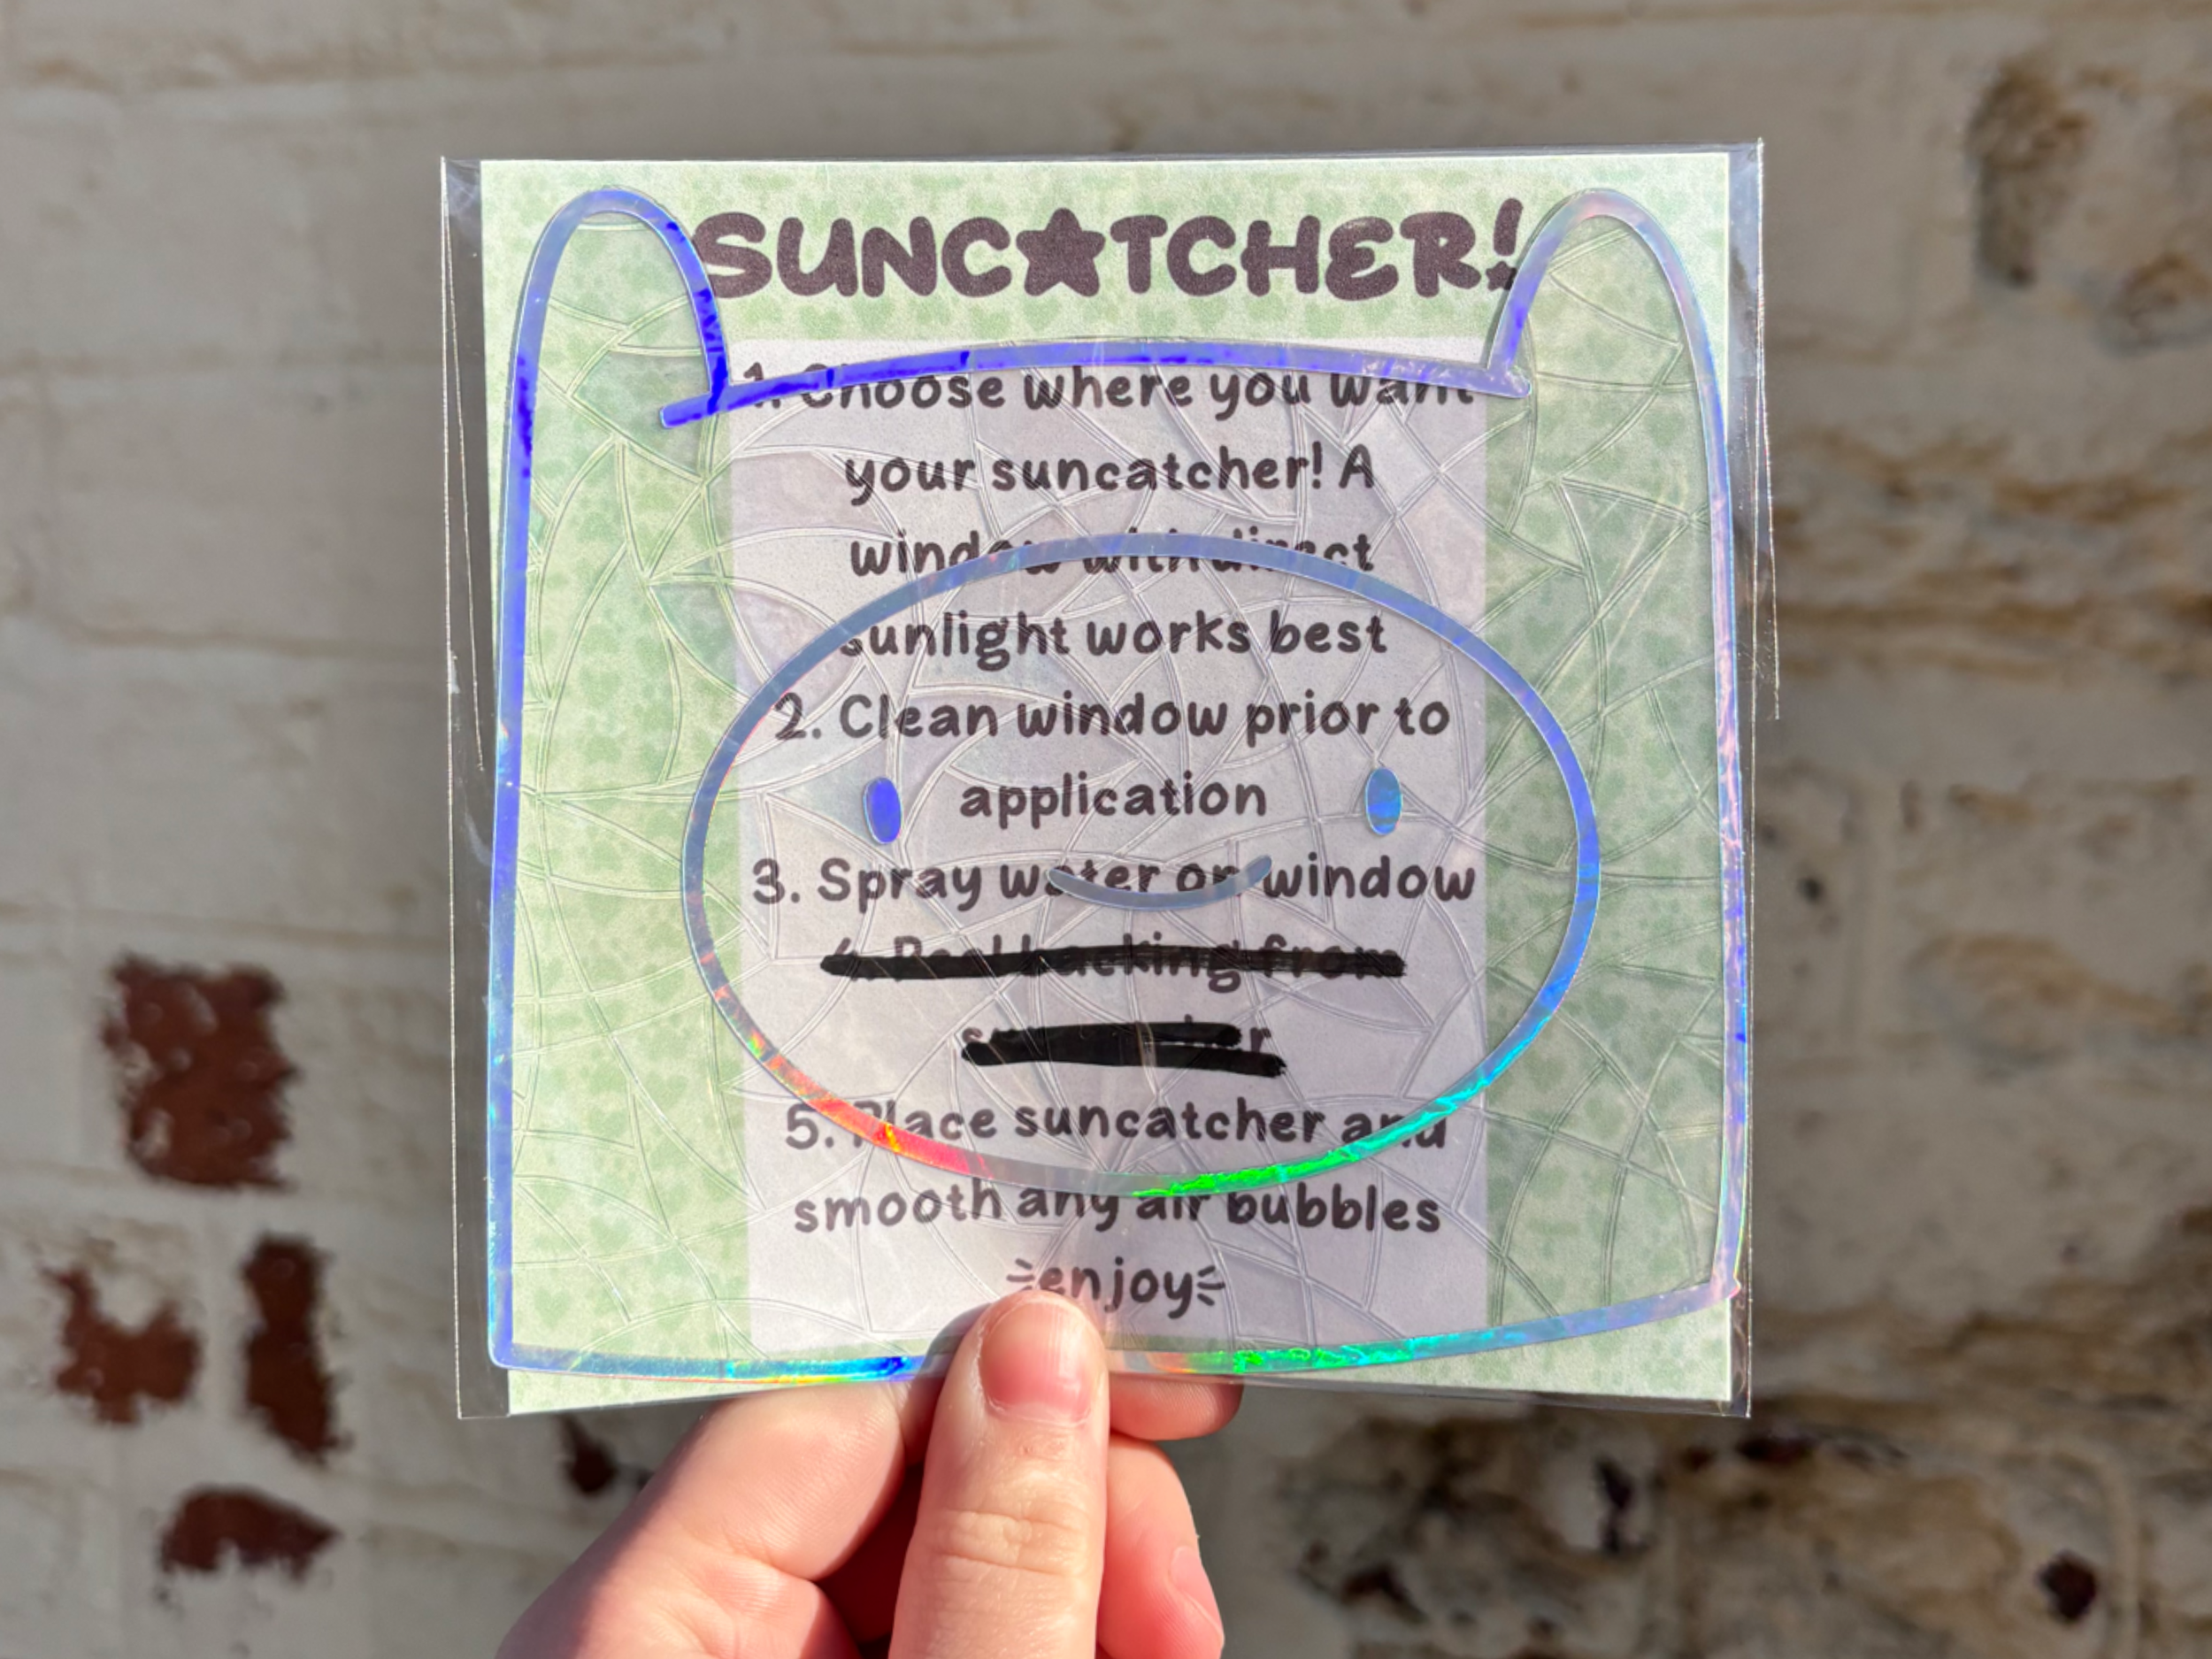 SUNCATCHER!
1. Choose where you want
your suncatcher! A
window with direct
sunlight works best
2. Clean window prior to
application
3. Spray water on window
4. Peel backing from
suncatcher
5. Place suncatcher and
smooth any air bubbles
enjoy